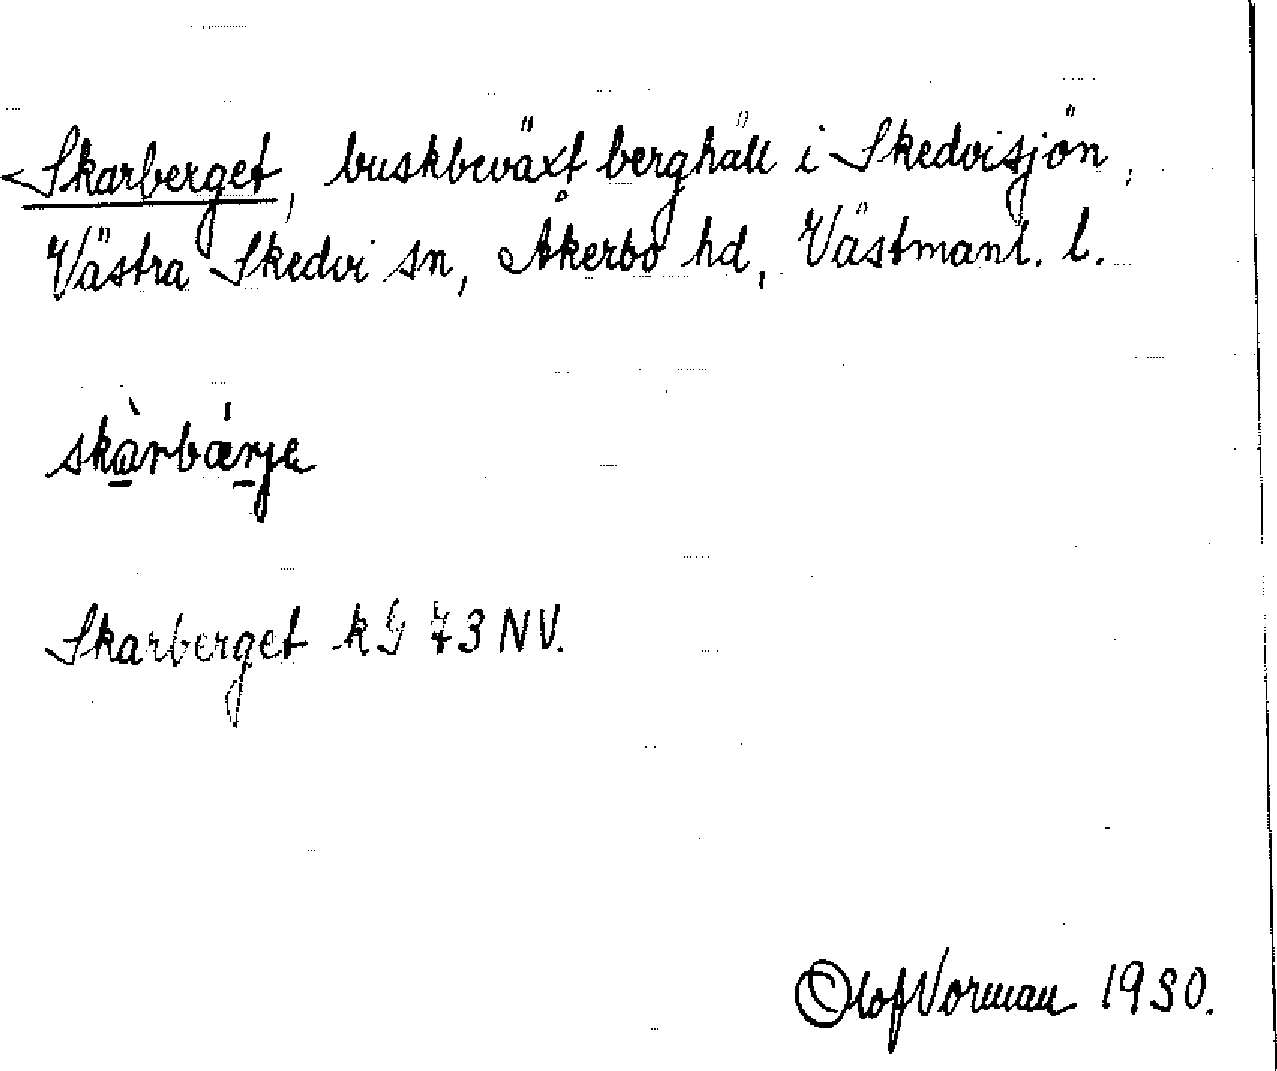 Skarberget, buskbeväxt berghäll i Skedvisjön,
Västra Skedvi sn, Åkerbo hd, Västmanl. l.
skàrbǽrje
Skarberget kG 73 NV.
Olof Vorman 1930.